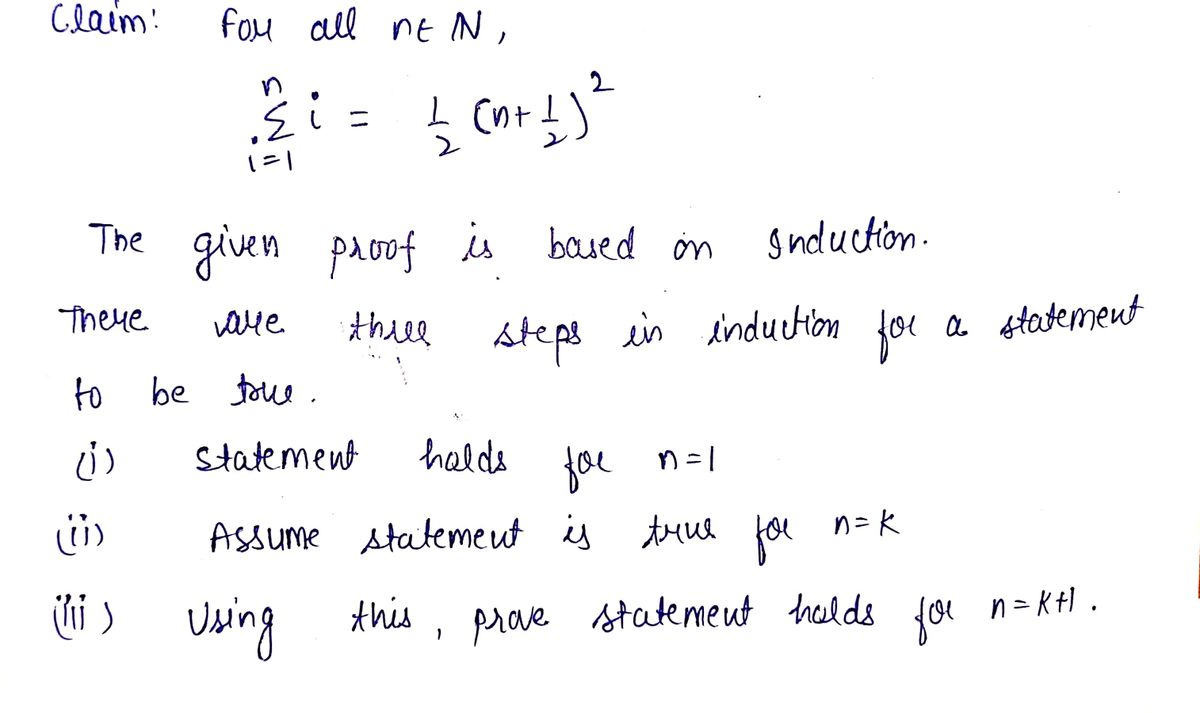 Claim: For all n∈ N,
n
Σ i = 1/2 (n+1/2)²
i=1
The given proof is based on Induction.
There are three steps in induction for a statement
to be true.
(i) Statement holds for n=1
(ii) Assume statement is true for n=K
(iii) Using this, prove statement holds for n=K+1.